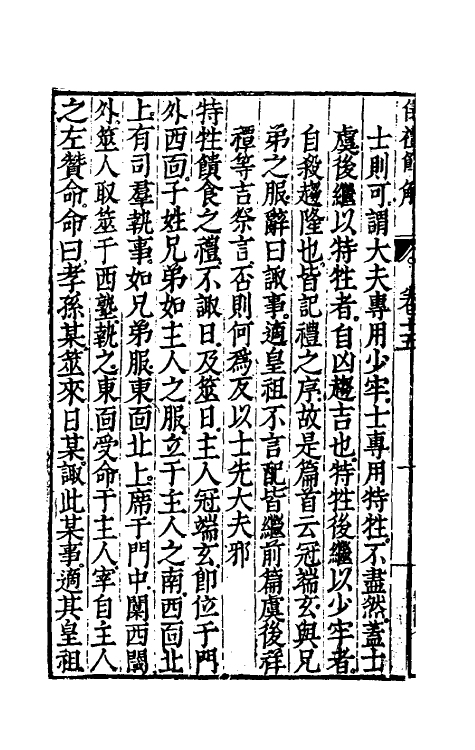 儀禮節解 卷十五
士則可謂大夫專用少牢士專用特牲不盡然蓋士
虞後繼以特牲者自凶趨吉也特牲後繼以少牢者
自殺趨隆也皆記禮之序故是篇首云冠端玄與兄
弟之服辭曰諏事適皇祖不言配皆繼前篇虞後祥
禫等吉祭言否則何為反以士先大夫邪
特牲饋食之禮不諏日及筮日主人冠端玄即位于門
外西面子姓兄弟如主人之服立于主人之南西面北
上有司羣執事如兄弟服東面北上席于門中闑西閾
外筮人取筮于西塾執之東面受命于主人宰自主人
之左贊命命曰孝孫某筮來日某諏此某事適其皇祖